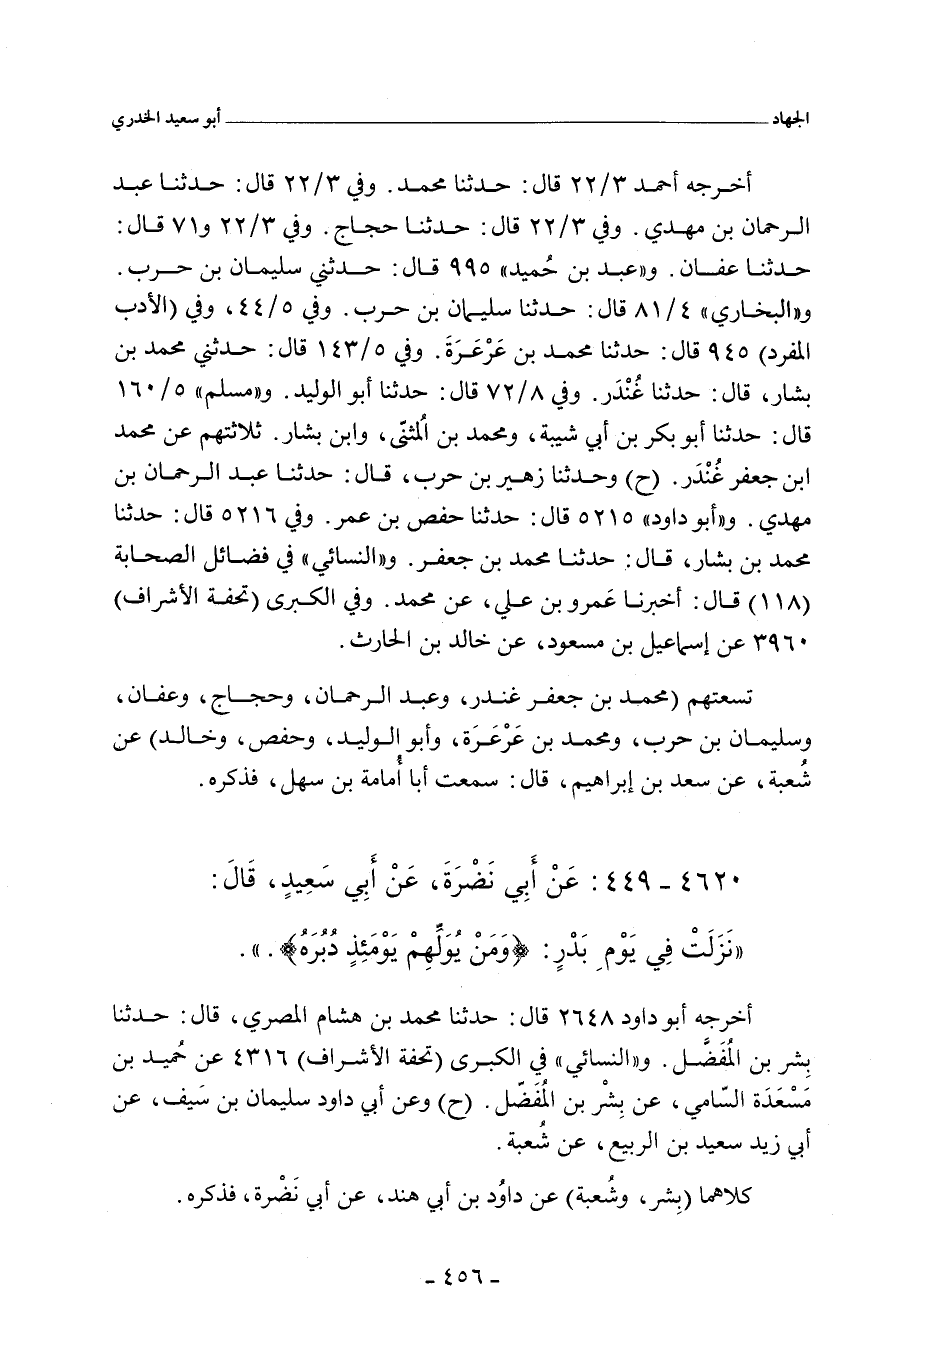 الجهاد ــــــــــ أبو سعيد الخدري
أخرجه أحمد ٢٢/٣ قال: حدثنا محمد. وفي ٢٢/٣ قال: حدثنا عبد
الرحمان بن مهدي. وفي ٢٢/٣ قال: حدثنا حجاج. وفي ٢٢/٣ و٧١ قال:
حدثنا عفان. و«عبد بن حُميد» ٩٩٥ قال: حدثني سليمان بن حرب.
و«البخاري» ٨١/٤ قال: حدثنا سليمان بن حرب. وفي ٤٤/٥، وفي (الأدب
المفرد) ٩٤٥ قال: حدثنا محمد بن عَرْعَرَةَ. وفي ١٤٣/٥ قال: حدثني محمد بن
بشار، قال: حدثنا غُنْدَر. وفي ٧٢/٨ قال: حدثنا أبو الوليد. و«مسلم» ١٦٠/٥
قال: حدثنا أبو بكر بن أبي شيبة، ومحمد بن المُثنّى، وابن بشار. ثلاثتهم عن محمد
ابن جعفر غُنْدَر. (ح) وحدثنا زهير بن حرب، قال: حدثنا عبد الرحمان بن
مهدي. و«أبو داود» ٥٢١٥ قال: حدثنا حفص بن عمر. وفي ٥٢١٦ قال: حدثنا
محمد بن بشار، قال: حدثنا محمد بن جعفر. و«النسائي» في فضائل الصحابة
(١١٨) قال: أخبرنا عَمرو بن علي، عن محمد. وفي الكبرى (تحفة الأشراف)
٣٩٦٠ عن إسماعيل بن مسعود، عن خالد بن الحارث.
تسعتهم (محمد بن جعفر غندر، وعبد الرحمان، وحجاج، وعفان،
وسليمان بن حرب، ومحمد بن عَرْعَرَة، وأبو الوليد، وحفص، وخالد) عن
شُعبة، عن سعد بن إبراهيم، قال: سمعت أبا أُمامة بن سهل، فذكره.
٤٦٢٠ - ٤٤٩: عَنْ أَبِي نَضْرَةَ، عَنْ أَبِي سَعِيدٍ، قَالَ:
«نَزَلَتْ فِي يَوْمِ بَدْرٍ: ﴿وَمَنْ يُوَلِّهِمْ يَوْمَئِذٍ دُبُرَهُ﴾.».
أخرجه أبو داود ٢٦٤٨ قال: حدثنا محمد بن هشام المصري، قال: حدثنا
بِشر بن المُفَضَّل. و«النسائي» في الكبرى (تحفة الأشراف) ٤٣١٦ عن حُميد بن
مَسْعَدَة السَّامي، عن بِشْر بن المُفَضّل. (ح) وعن أبي داود سليمان بن سَيف، عن
أبي زيد سعيد بن الربيع، عن شُعبة.
كلاهما (بِشر، وشُعبة) عن داوُد بن أبي هند، عن أبي نَضْرة، فذكره.
- ٤٥٦ -